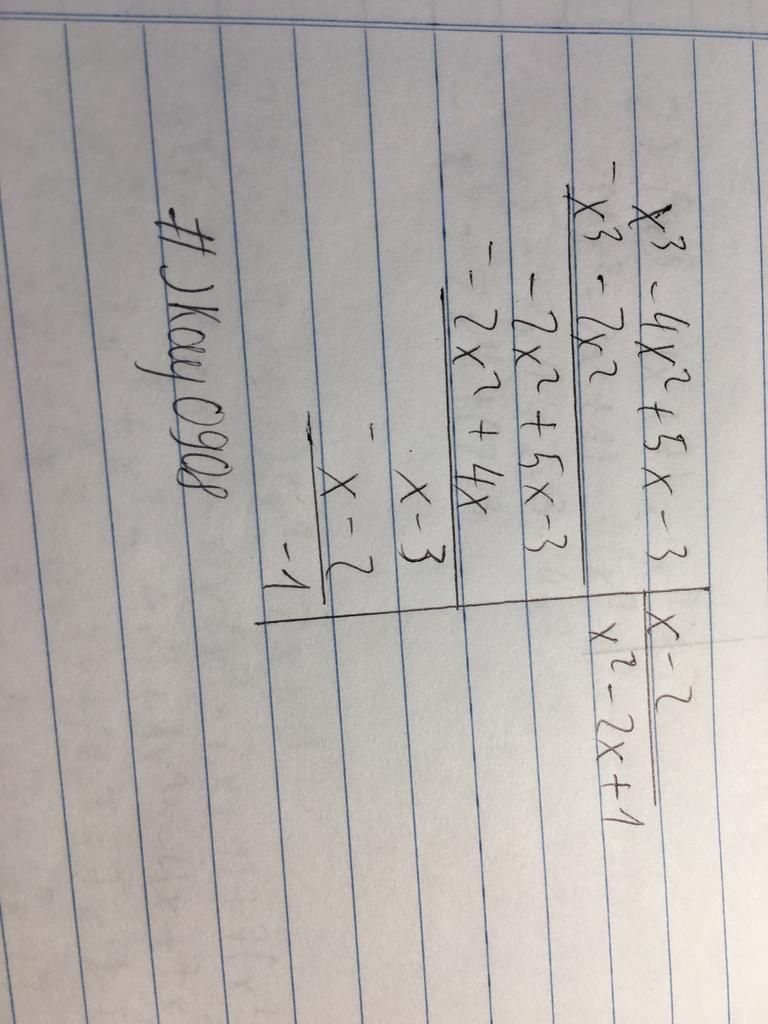 x³ - 4x² + 5x - 3 | x - 2
- x³ - 2x² | x² - 2x + 1
- 2x² + 5x - 3
- - 2x² + 4x
x - 3
- x - 2
- 1
#Jkay0908